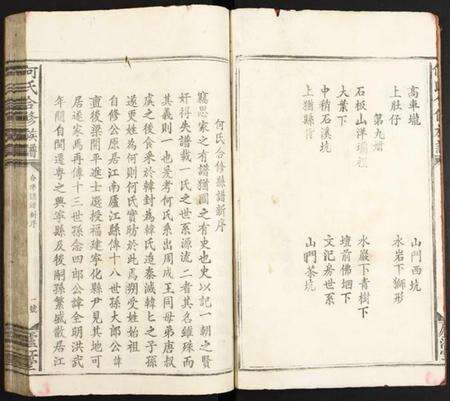 高車壠
上肚仔
第九增
石板山洋
大葉下
中稍石溪坑
上猶縣
山門西坑
水岩下獅形
水巖下青樹下
壇前佛㘭下
文記岑世系
山門茶坑
何氏合修族譜新序
竊思家之有譜猶國之有史也史以記一朝之賢
奸得失譜以敘一氏之世系源流二者其名雖殊而
其義則一也爰考何氏系出周成王同母弟唐叔
虞之後食采於韓封為韓氏迨秦滅韓韓之子孫
遂更姓為何則何氏實昉於此焉朔受姓始祖
自修公原居江南廬江縣傳十八世孫大郎公諱
直後梁開平進士選授福建寧化縣尹見其地可
居遂家焉再傳十三世孫念四郎公諱全明洪武
年間自閩遷粵之興寧縣及後嗣孫繁盛散居江
何氏合修族譜
合修族譜新序
一號
廬江堂